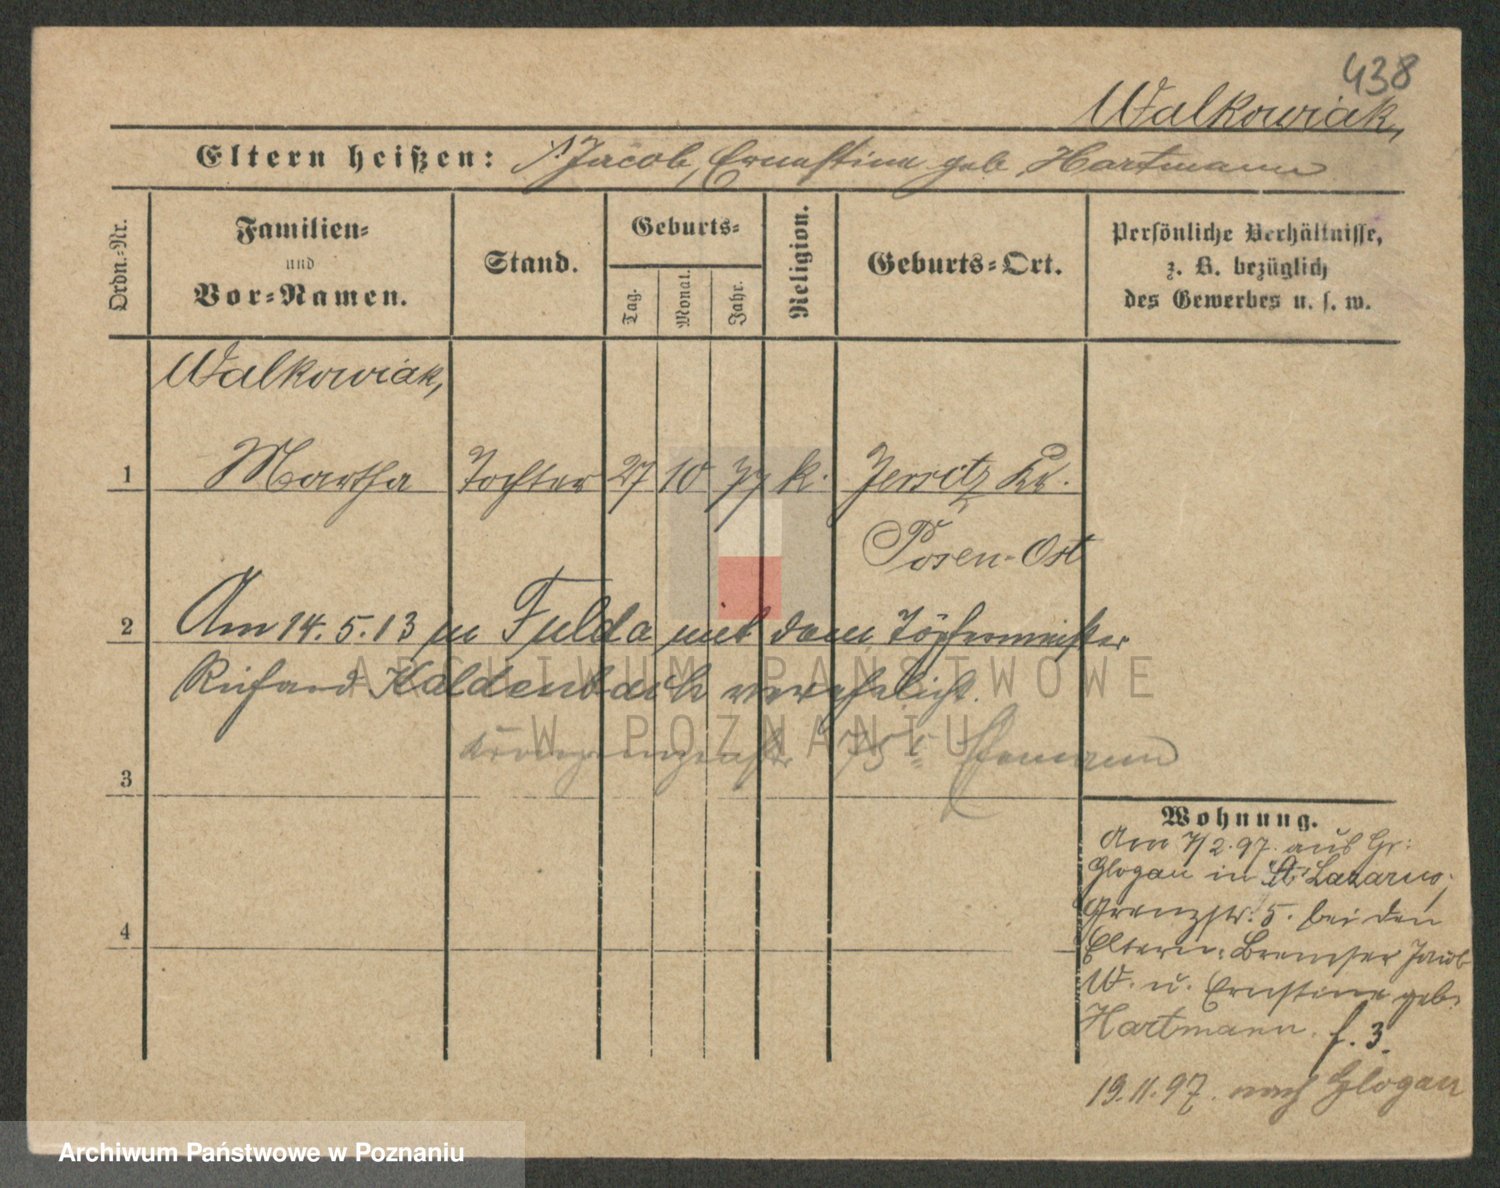 438
Walkowiak,
Eltern heißen: Jacob, Ernestine geb Hartmann
Ordn.-Nr.
Familien-
und
Vor-Namen.
Stand.
Geburts-
Tag.
Monat.
Jahr.
Religion.
Geburts-Ort.
Persönliche Verhältnisse,
z. B. bezüglich
des Gewerbes u. s. w.
Walkowiak,
1 Martha Tochter 27 10 77 k. Jersitz Kr.
Posen-Ost
2 Am 14.5.13 in Fulda mit dem Töpfermeister
Richard Kaldenbach verehelicht.
ARCHIWUM PAŃSTWOWE
W POZNANIU
3
Wohnung.
Am 7/2.97. aus Gr:
Glogau in St Lazarus,
Grenzstr. 5. bei den
Eltern: Bremser Jacob
W. u. Ernstine geb.
Hartmann. f. 3.
4
19.11.97. nach Glogau
Archiwum Państwowe w Poznaniu